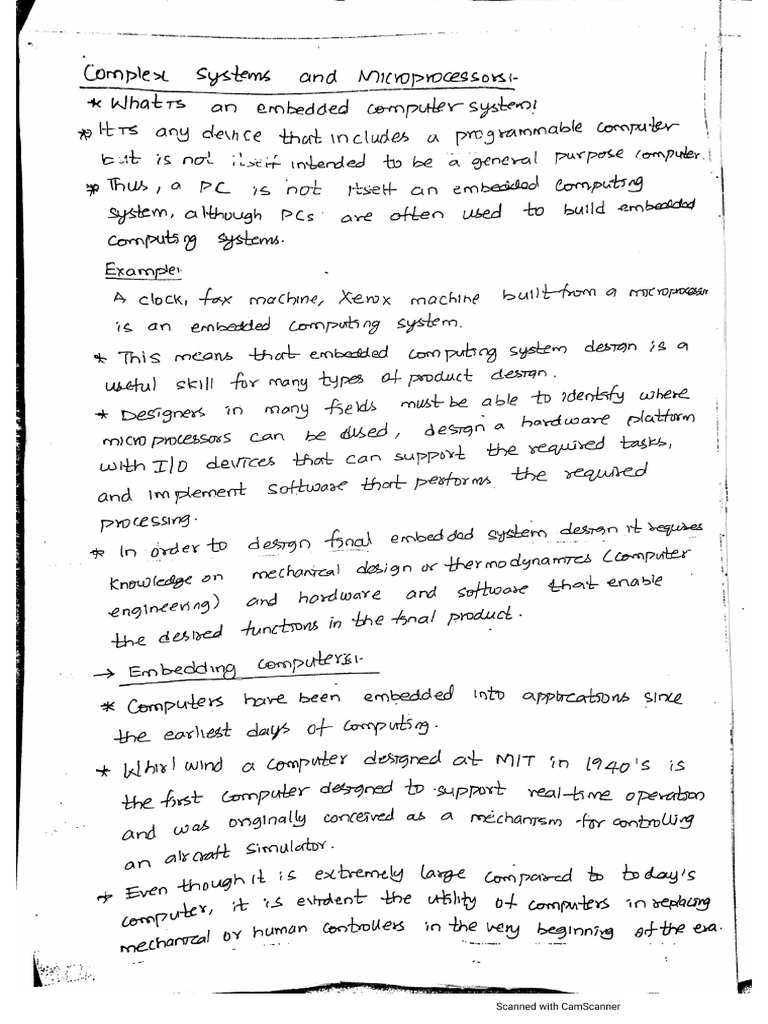 Complex Systems and Microprocessors:-
* What is an embedded computer system?
* It is any device that includes a programmable computer
but is not itself intended to be a general purpose computer.
* Thus, a PC is not itself an embedded computing
system, although PCs are often used to build embedded
computing systems.
Example:
A clock, fax machine, Xerox machine built from a microprocessor
is an embedded computing system.
* This means that embedded computing system design is a
useful skill for many types of product design.
* Designers in many fields must be able to identify where
microprocessors can be used, design a hardware platform
with I/O devices that can support the required tasks,
and implement software that performs the required
processing.
* In order to design final embedded system design it requires
knowledge on mechanical design or thermodynamics (computer
engineering) and hardware and software that enable
the desired functions in the final product.
→ Embedding computers:-
* Computers have been embedded into applications since
the earliest days of computing.
* Whirl wind a computer designed at MIT in 1940's is
the first computer designed to support real-time operation
and was originally conceived as a mechanism for controlling
an aircraft simulator.
* Even though it is extremely large compared to today's
computer, it is evident the utility of computers in replacing
mechanical or human controllers in the very beginning of the era.
Scanned with CamScanner